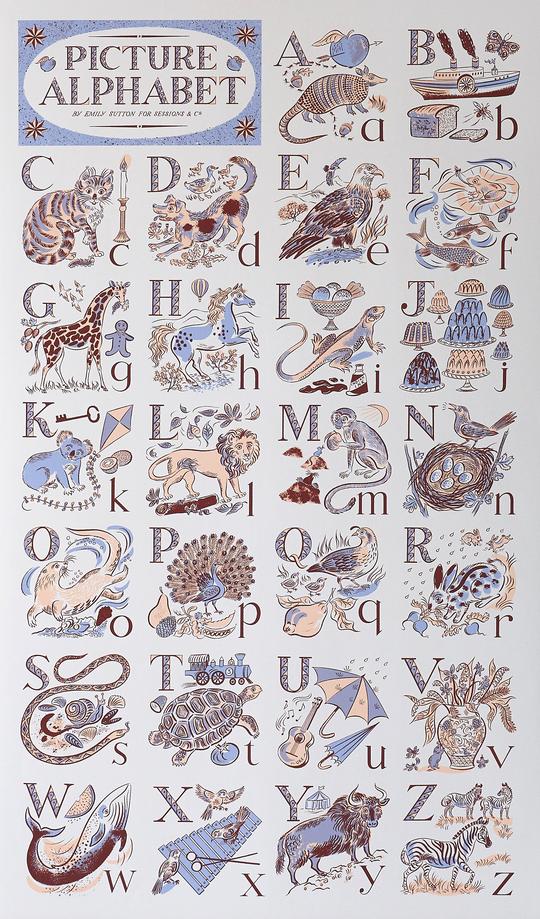 PICTURE
ALPHABET
BY EMILY SUTTON FOR SESSIONS & Cº
A a
B b
C c
D d
E e
F f
G g
H h
I i
J j
K k
L l
M m
N n
O o
P p
Q q
R r
S s
T t
U u
V v
W w
X x
Y y
Z z